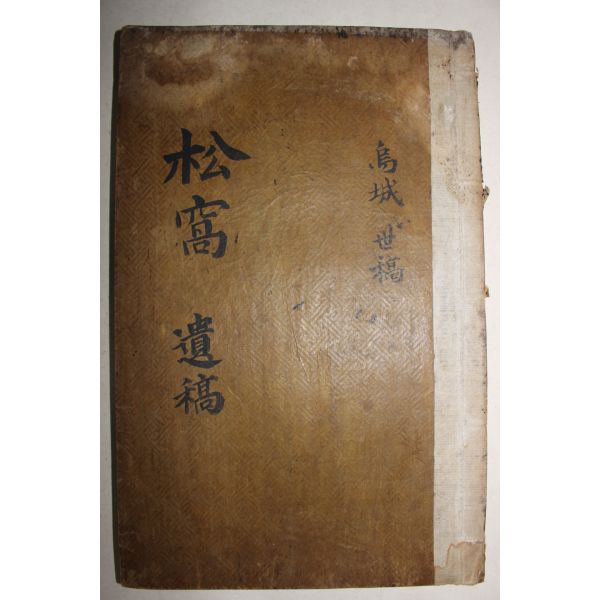 烏城世稿
松窩 遺稿